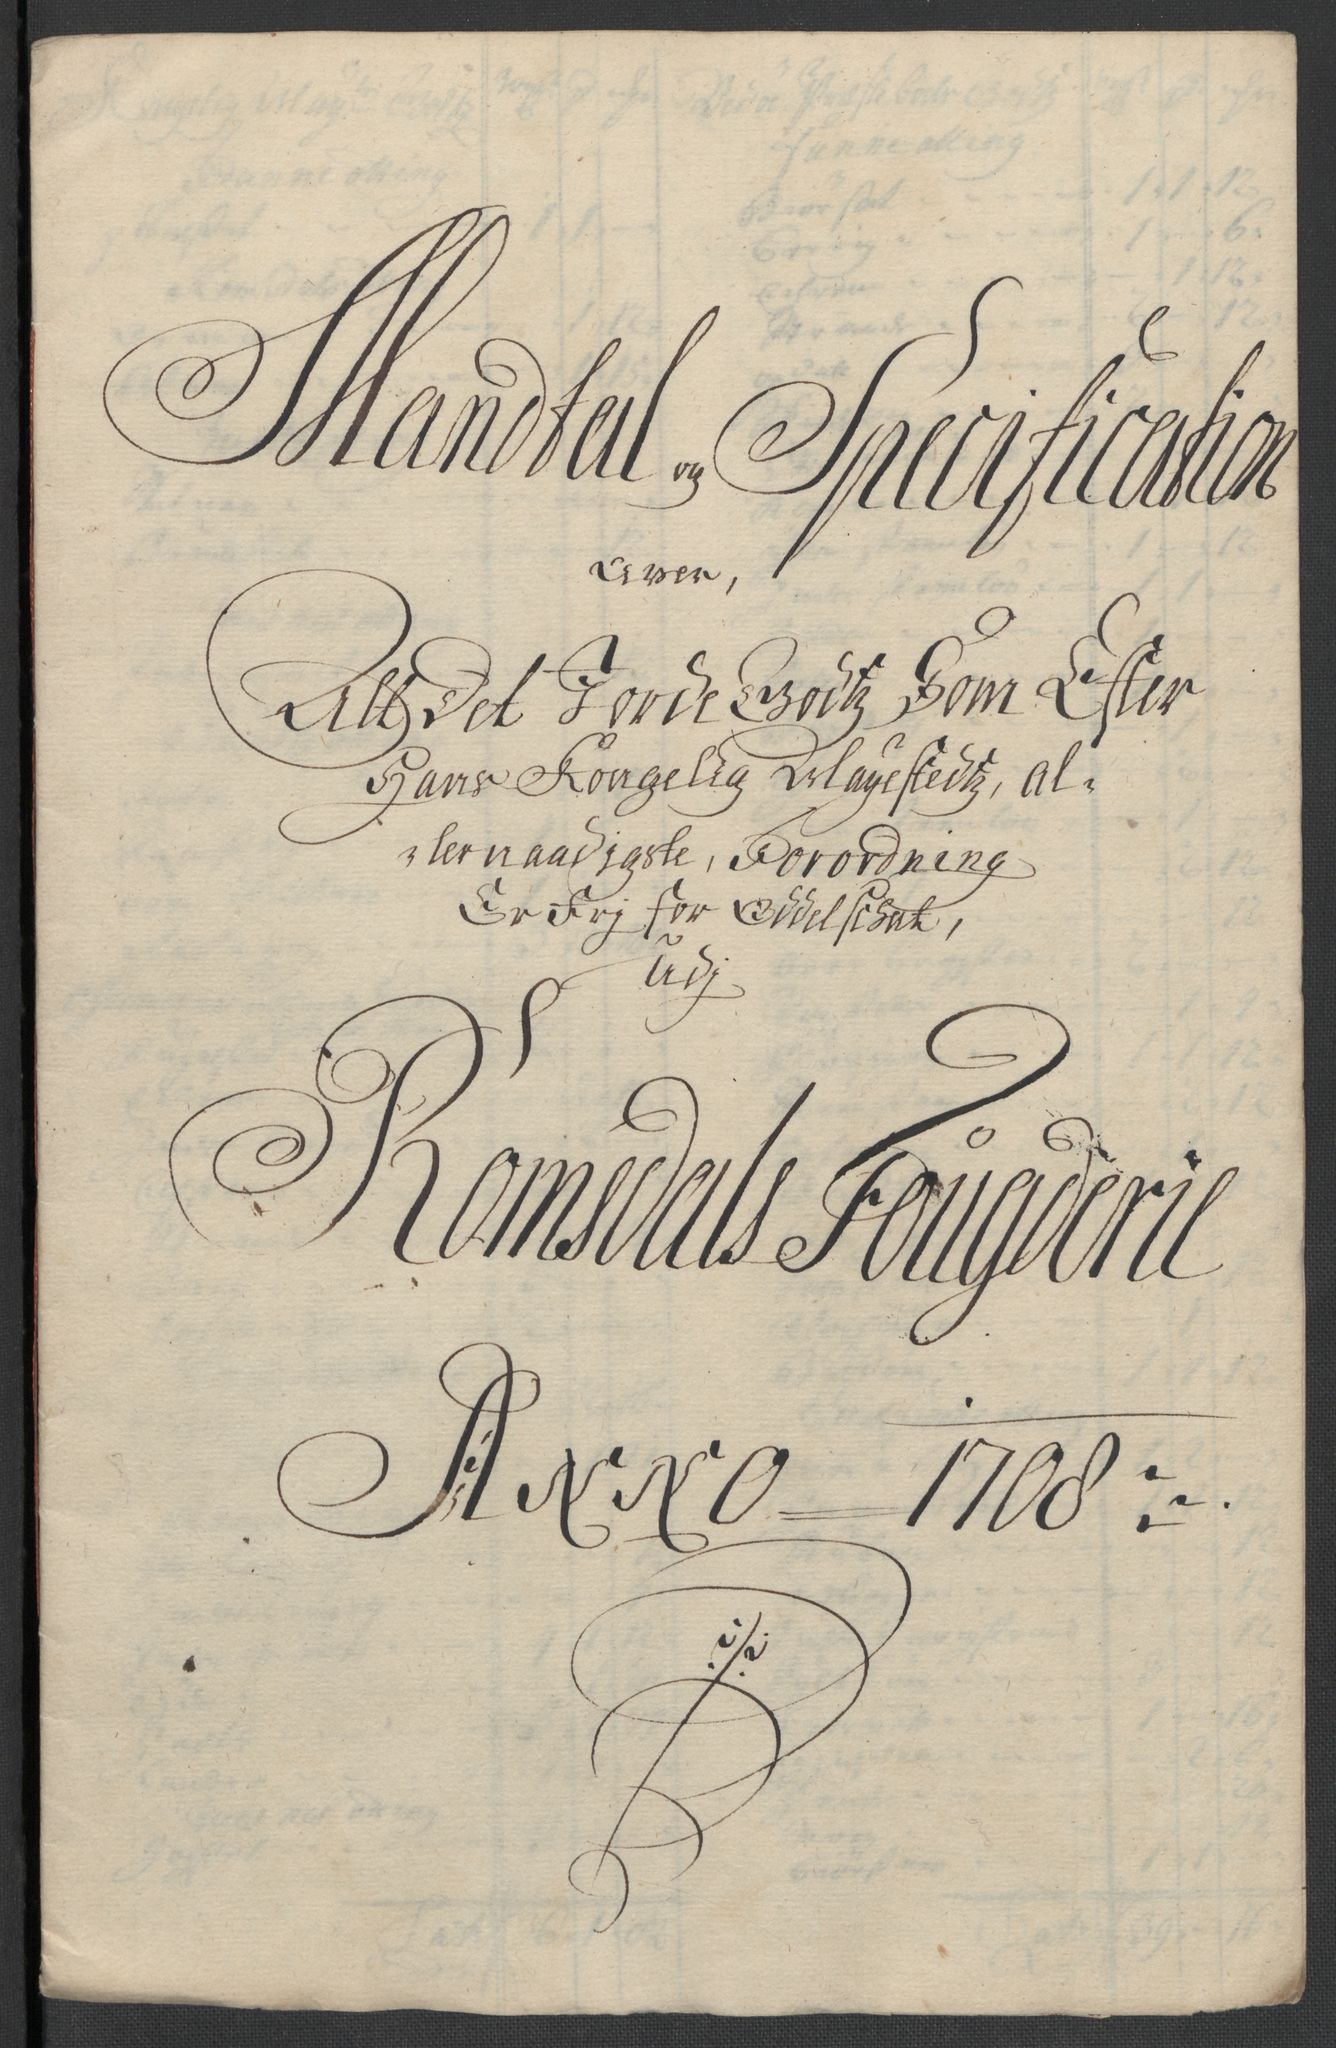 Mandtal og Specification
Over,
Alt Det Jorde Godtz Som Efter
Hans Kongelig Mayestedtz, al-
-lernaadigste, Forordning
Er Frj for Oddelschat,
Udj
Romsdals Fougderie
Anno 1708